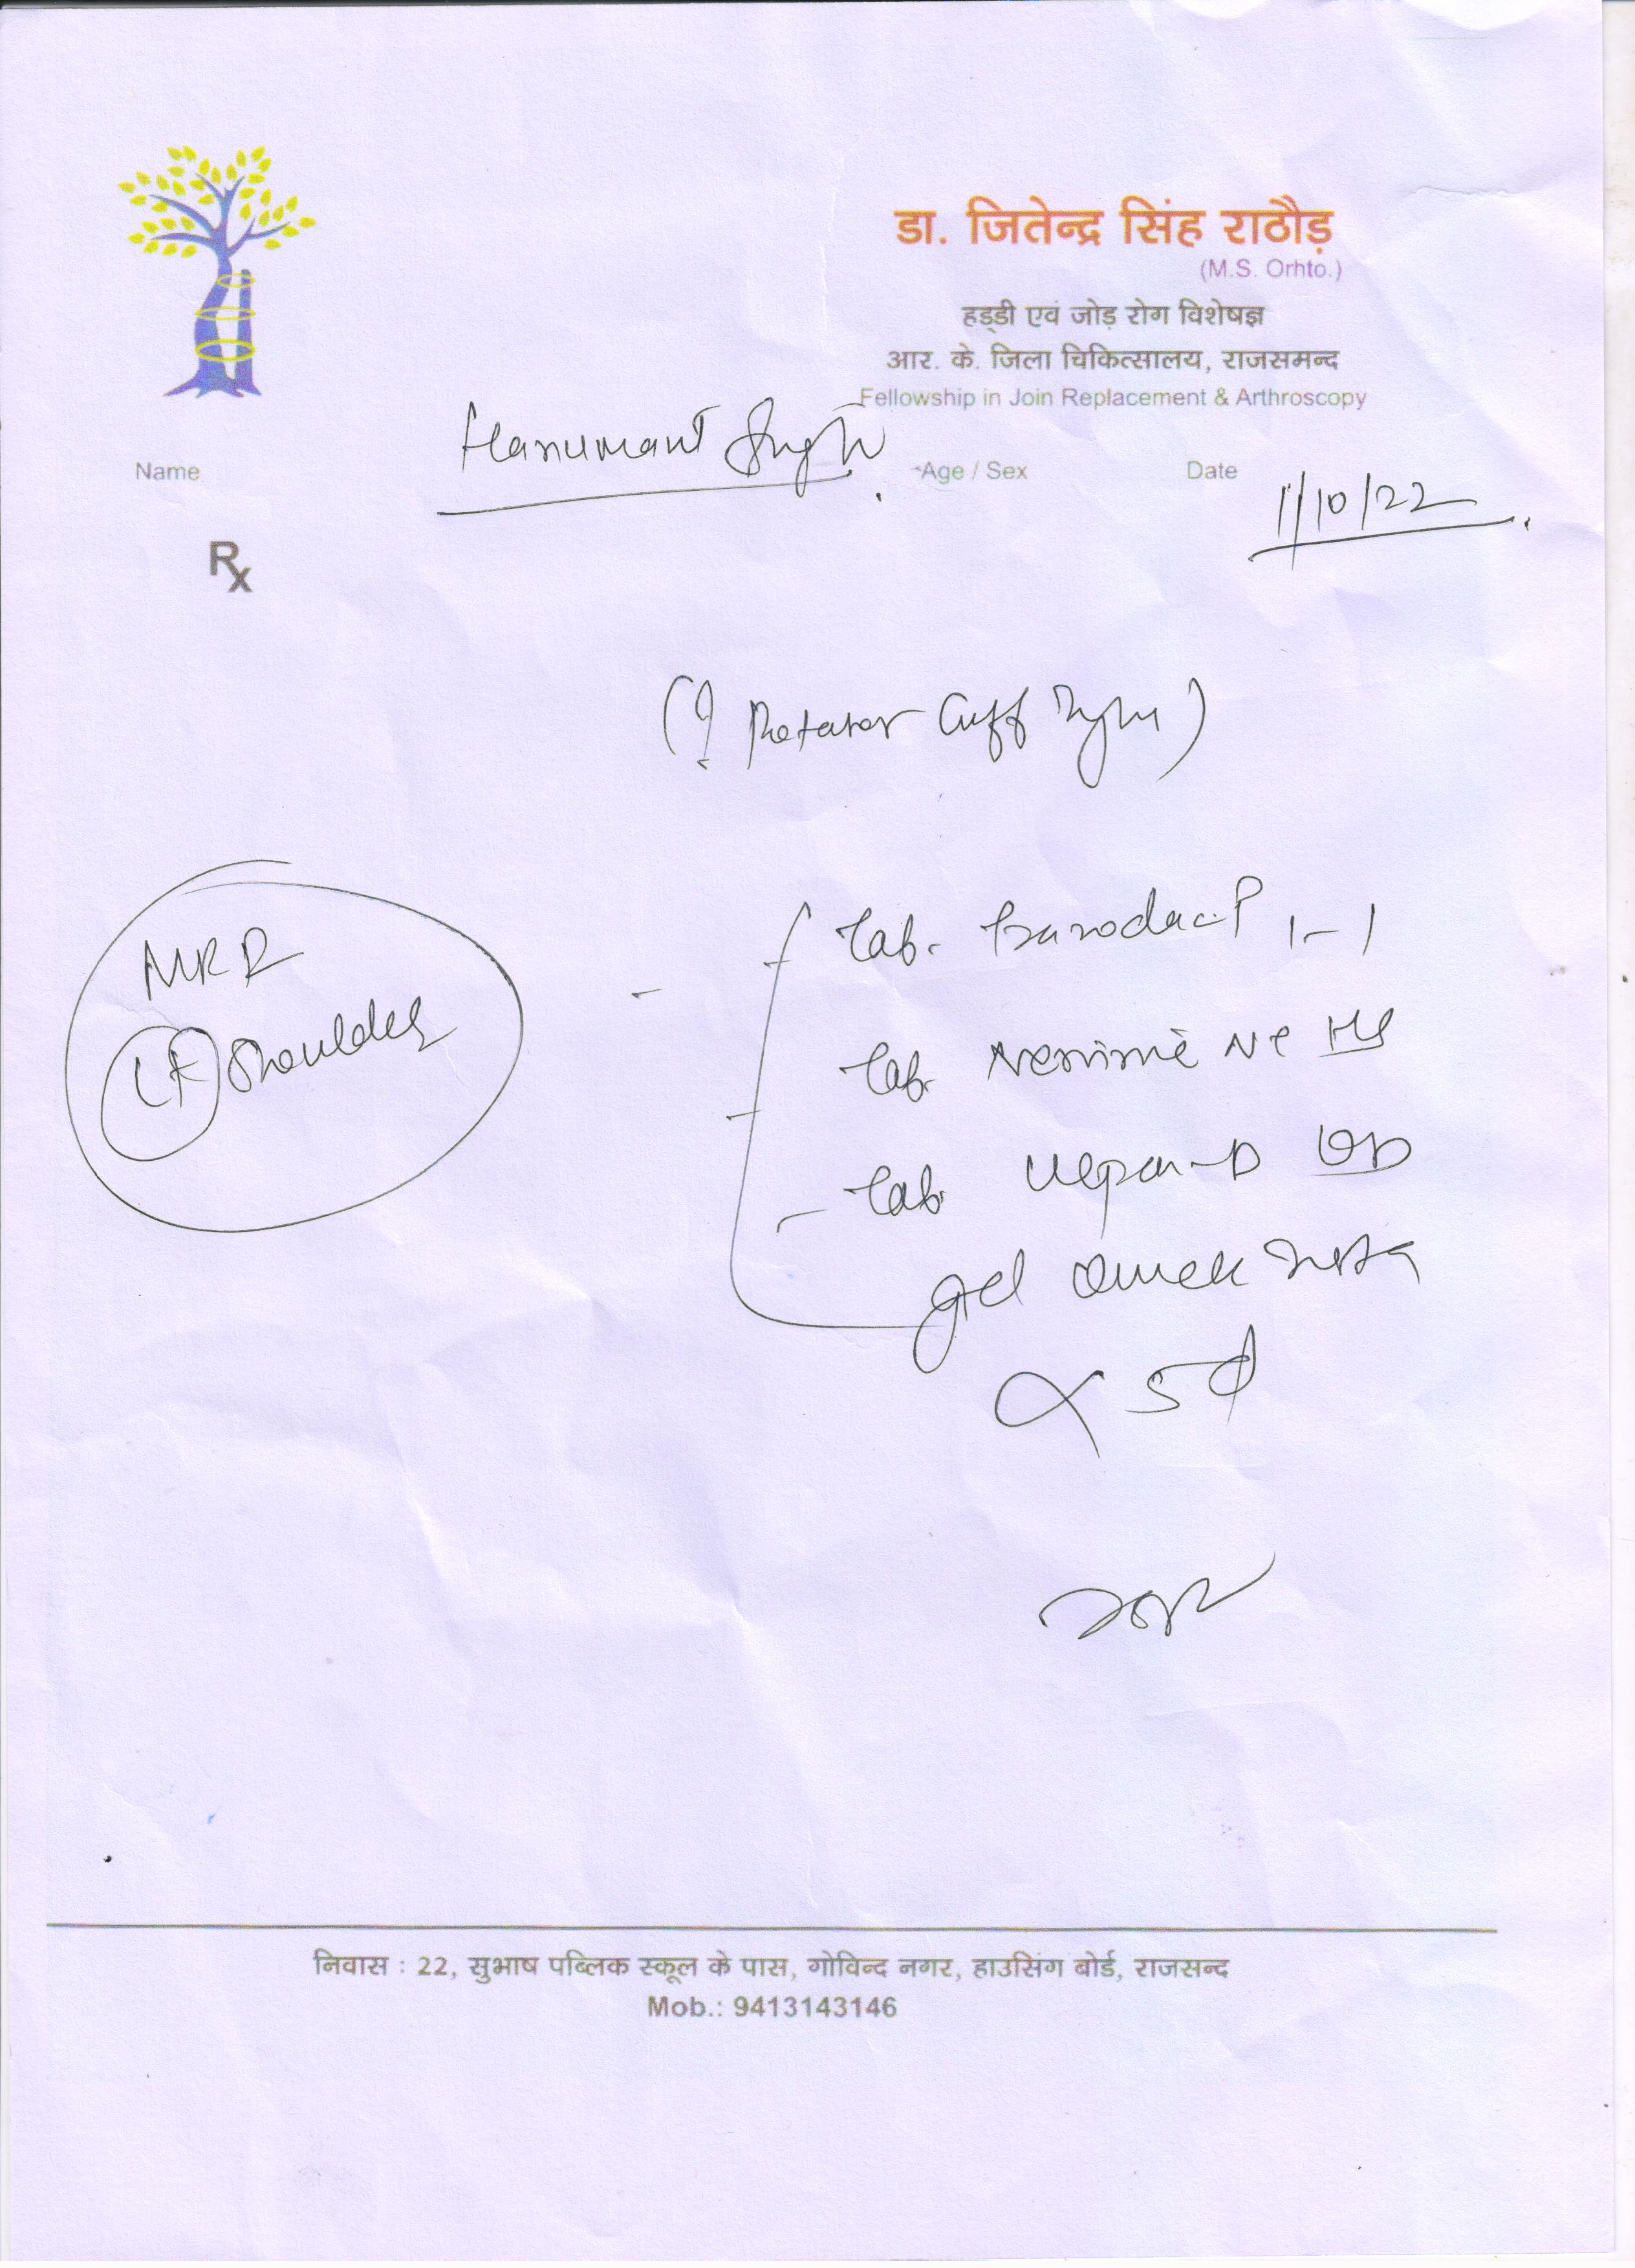 डा. जितेन्द्र सिंह राठौड़
(M.S. Orhto.)
हड्डी एवं जोड़ रोग विशेषज्ञ
आर. के. जिला चिकित्सालय, राजसमन्द
Fellowship in Join Replacement & Arthroscopy
Name Hanumant Singh Age / Sex Date 1/10/22
Rx
(? Rotator Cuff
Tab. 1-1
MRI
Tab. HS
Lt Shoulder
Tab. OD
gel
x 5d
निवास : 22, सुभाष पब्लिक स्कूल के पास, गोविन्द नगर, हाउसिंग बोर्ड, राजसन्द
Mob.: 9413143146